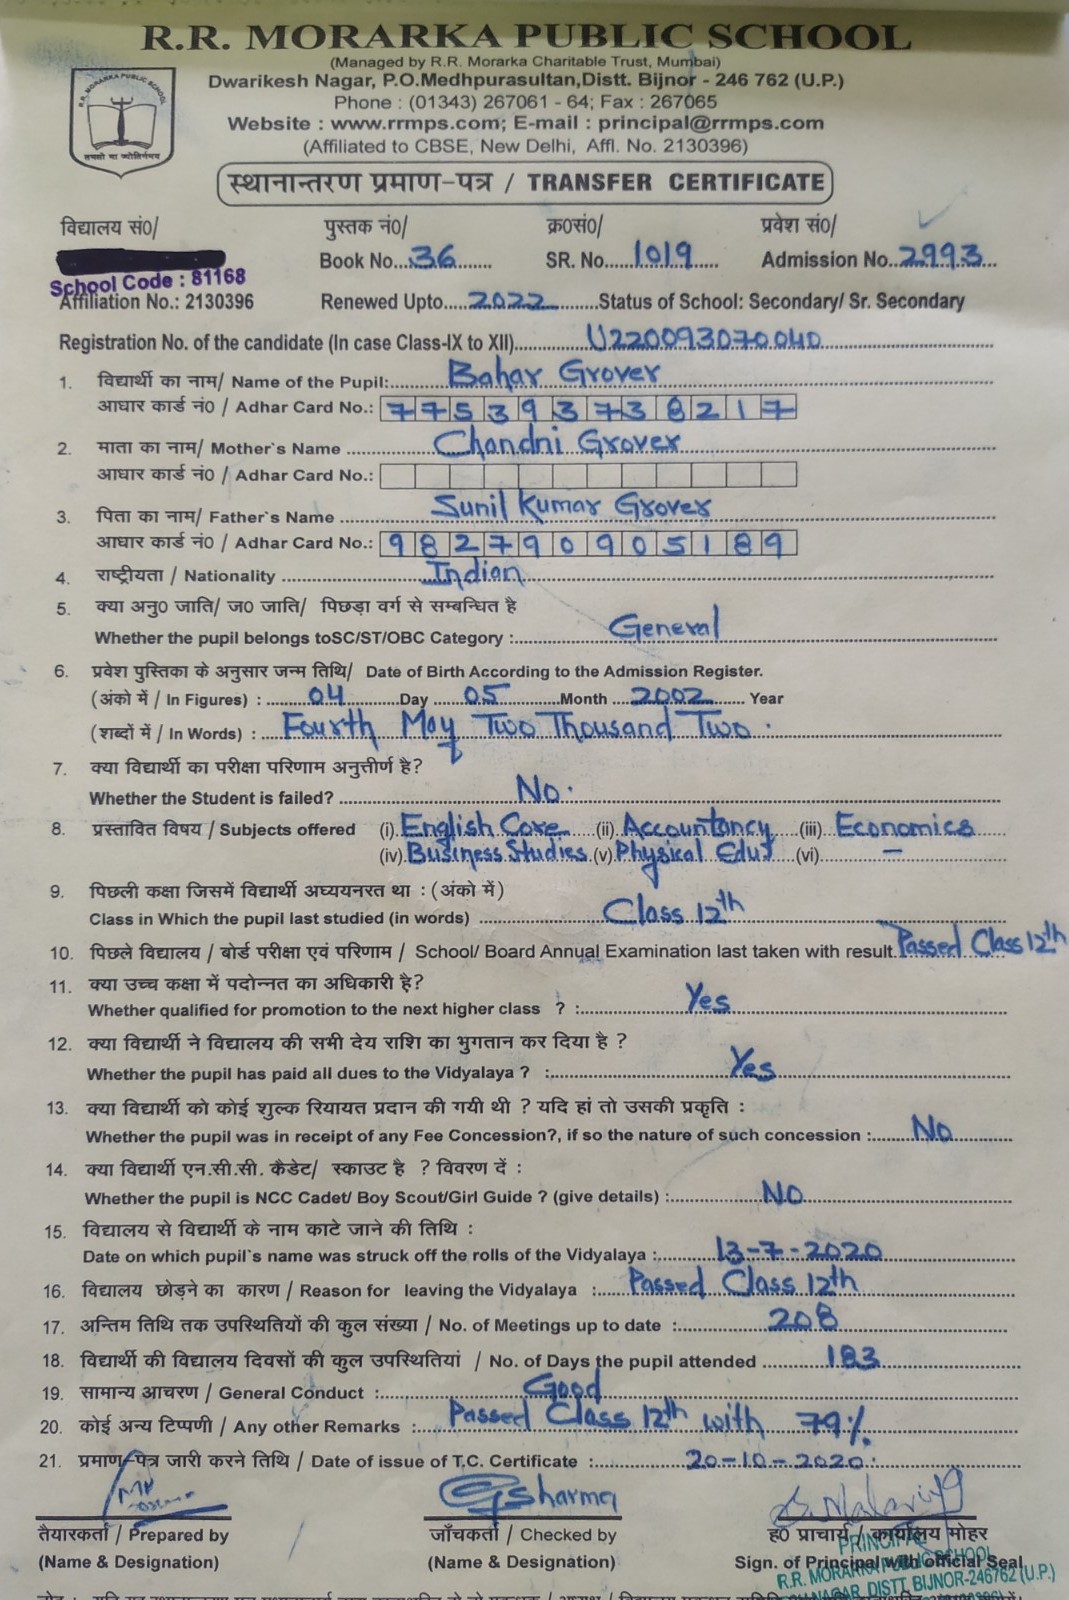 R.R. MORARKA PUBLIC SCHOOL
(Managed by R.R. Morarka Charitable Trust, Mumbai)
Dwarikesh Nagar, P.O.Medhpurasultan,Distt. Bijnor - 246 762 (U.P.)
Phone : (01343) 267061 - 64; Fax : 267065
Website : www.rrmps.com; E-mail : principal@rrmps.com
(Affiliated to CBSE, New Delhi, Affl. No. 2130396)
R.R. MORARKA PUBLIC SCHOOL
तमसो मा ज्योतिर्गमय
स्थानान्तरण प्रमाण-पत्र / TRANSFER CERTIFICATE
विद्यालय सं0/ पुस्तक नं0/ क्र0सं0/ प्रवेश सं0/
Book No...36....... SR. No...1019..... Admission No..2993...
School Code : 81168
Affiliation No.: 2130396 Renewed Upto.....2022..........Status of School: Secondary/ Sr. Secondary
Registration No. of the candidate (In case Class-IX to XII)..............U220093070040
1. विद्यार्थी का नाम/ Name of the Pupil:.......... Bahar Grover
आधार कार्ड नं0 / Adhar Card No.: 7 7 5 3 9 3 7 3 8 2 1 7
2. माता का नाम/ Mother`s Name .......... Chandni Grover
आधार कार्ड नं0 / Adhar Card No.:
3. पिता का नाम/ Father`s Name .......... Sunil Kumar Grover
आधार कार्ड नं0 / Adhar Card No.: 9 8 2 7 9 0 9 0 5 1 8 9
4. राष्ट्रीयता / Nationality .......... Indian
5. क्या अनु0 जाति/ ज0 जाति/ पिछड़ा वर्ग से सम्बन्धित है
Whether the pupil belongs toSC/ST/OBC Category :.......... General
6. प्रवेश पुस्तिका के अनुसार जन्म तिथि/ Date of Birth According to the Admission Register.
(अंको में / In Figures) : ....... 04 .......Day ... 05 .......Month ... 2002 ...... Year
(शब्दों में / In Words) : .... Fourth May Two Thousand Two .
7. क्या विद्यार्थी का परीक्षा परिणाम अनुत्तीर्ण है?
Whether the Student is failed? .......... No.
8. प्रस्तावित विषय / Subjects offered (i) English Core (ii) Accountancy (iii) Economics
(iv) Business Studies (v) Physical Edu (vi) —
9. पिछली कक्षा जिसमें विद्यार्थी अघ्ययनरत था : (अंको में)
Class in Which the pupil last studied (in words) .......... Class 12th
10. पिछले विद्यालय / बोर्ड परीक्षा एवं परिणाम / School/ Board Annual Examination last taken with result. Passed Class 12th
11. क्या उच्च कक्षा में पदोन्नत का अधिकारी है?
Whether qualified for promotion to the next higher class ? :.......... Yes
12. क्या विद्यार्थी ने विद्यालय की सभी देय राशि का भुगतान कर दिया है ?
Whether the pupil has paid all dues to the Vidyalaya ? :.......... Yes
13. क्या विद्यार्थी को कोई शुल्क रियायत प्रदान की गयी थी ? यदि हां तो उसकी प्रकृति :
Whether the pupil was in receipt of any Fee Concession?, if so the nature of such concession :....... No
14. क्या विद्यार्थी एन.सी.सी. कैडेट/ स्काउट है ? विवरण दें :
Whether the pupil is NCC Cadet/ Boy Scout/Girl Guide ? (give details) :.......... NO
15. विद्यालय से विद्यार्थी के नाम काटे जाने की तिथि :
Date on which pupil`s name was struck off the rolls of the Vidyalaya :.......... 13-7-2020
16. विद्यालय छोड़ने का कारण / Reason for leaving the Vidyalaya :...... Passed Class 12th
17. अन्तिम तिथि तक उपस्थितियों की कुल संख्या / No. of Meetings up to date :.......... 208
18. विद्यार्थी की विद्यालय दिवसों की कुल उपस्थितियां / No. of Days the pupil attended .......... 183
19. सामान्य आचरण / General Conduct :.......... Good
20. कोई अन्य टिप्पणी / Any other Remarks :....... Passed Class 12th with 79%.
21. प्रमाण-पत्र जारी करने तिथि / Date of issue of T.C. Certificate :.......... 20-10-2020.
GSharma
तैयारकर्ता / Prepared by जाँचकर्ता / Checked by ह0 प्राचार्य / कार्यालय मोहर
(Name & Designation) (Name & Designation) Sign. of Principal with official Seal
PRINCIPAL
R.R. MORARKA PUBLIC SCHOOL
NAGAR, DISTT. BIJNOR-246762 (U.P.)